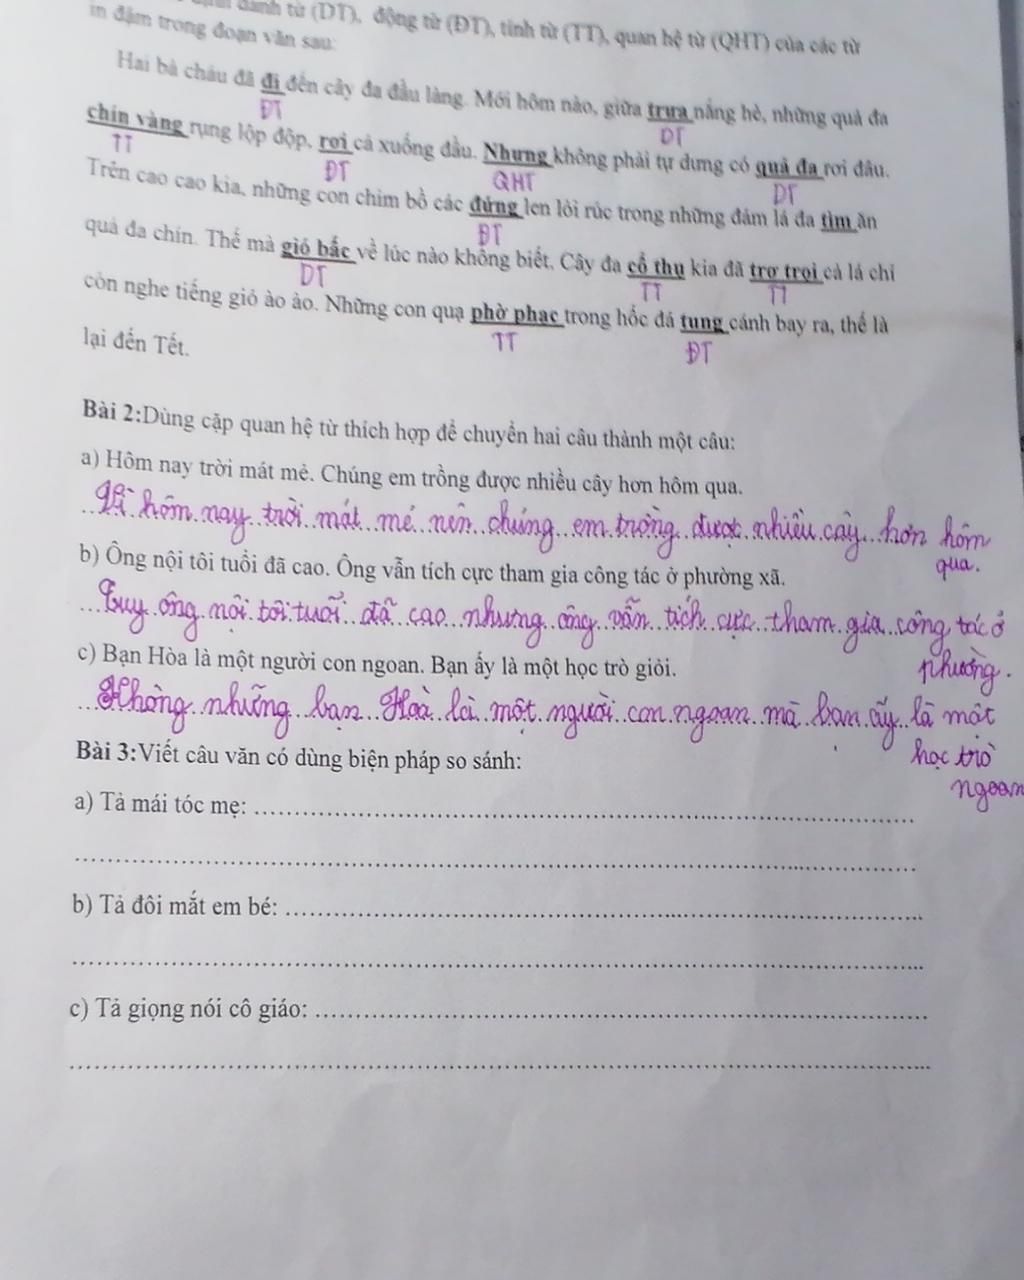 danh từ (DT), động từ (ĐT), tính từ (TT), quan hệ từ (QHT) của các từ
in đậm trong đoạn văn sau:
Hai bà cháu đã đi đến cây đa đầu làng. Mới hôm nào, giữa trưa nắng hè, những quả đa
ĐT DT
chín vàng rụng lộp độp, rơi cả xuống đầu. Nhưng không phải tự dưng có quả đa rơi đâu.
TT ĐT QHT DT
Trên cao cao kia, những con chim bồ các đứng len lỏi rúc trong những đám lá đa tìm ăn
ĐT
quả đa chín. Thế mà gió bấc về lúc nào không biết. Cây đa cổ thụ kia đã trơ trọi cả lá chỉ
DT TT TT
còn nghe tiếng gió ào ào. Những con quạ phờ phạc trong hốc đá tung cánh bay ra, thế là
TT ĐT
lại đến Tết.
Bài 2:Dùng cặp quan hệ từ thích hợp để chuyển hai câu thành một câu:
a) Hôm nay trời mát mẻ. Chúng em trồng được nhiều cây hơn hôm qua.
Vì hôm nay trời mát mẻ nên chúng em trồng được nhiều cây hơn hôm
qua.
b) Ông nội tôi tuổi đã cao. Ông vẫn tích cực tham gia công tác ở phường xã.
Tuy ông nội tôi tuổi đã cao nhưng ông vẫn tích cực tham gia công tác ở
phường.
c) Bạn Hòa là một người con ngoan. Bạn ấy là một học trò giỏi.
Không những bạn Hoà là một người con ngoan mà bạn ấy là một
học trò
ngoan
Bài 3:Viết câu văn có dùng biện pháp so sánh:
a) Tả mái tóc mẹ:
b) Tả đôi mắt em bé:
c) Tả giọng nói cô giáo: